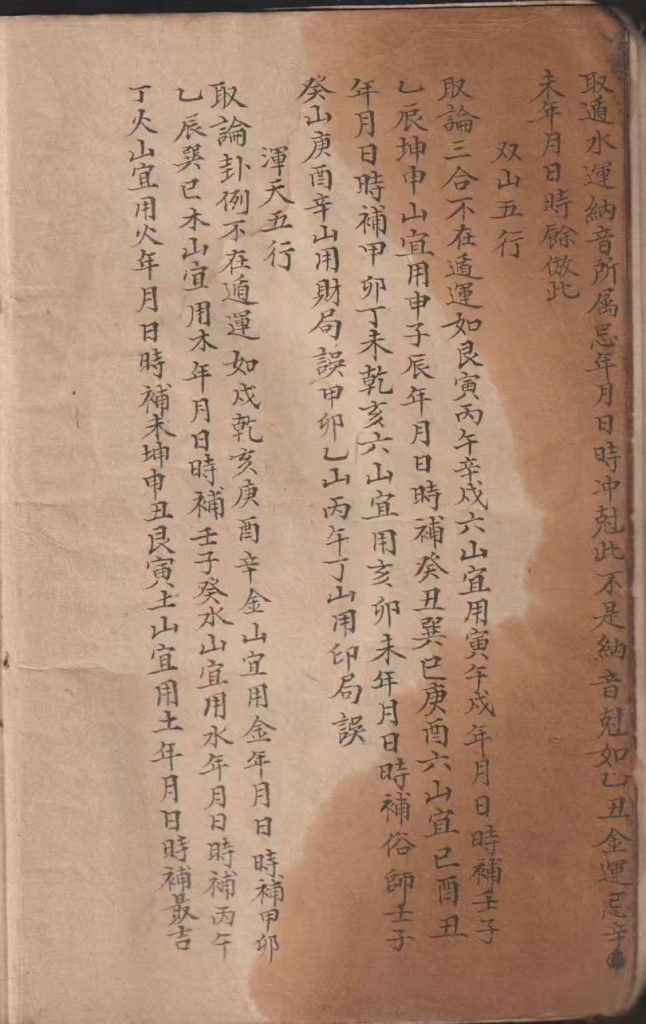 取遁水運納音所属忌年月日時冲尅此不是納音尅如乙丑金運忌辛
未年月日時餘倣此
双山五行
取論三合不在遁運如艮寅丙午辛戌六山宜用寅午戌年月日時補壬子
乙辰坤申山宜用申子辰年月日時補癸丑巽巳庚酉六山宜巳酉丑
年月日時補甲卯丁未乾亥六山宜用亥卯未年月日時補俗師壬子
癸山庚酉辛山用財局誤甲卯乙山丙午丁山用印局誤
渾天五行
取論卦例不在遁運如戌乾亥庚酉辛金山宜用金年月日時補甲卯
乙辰巽巳木山宜用木年月日時補壬子癸水山宜用水年月日時補丙午
丁火山宜用火年月日時補未坤申丑艮寅土山宜用土年月日時補最吉